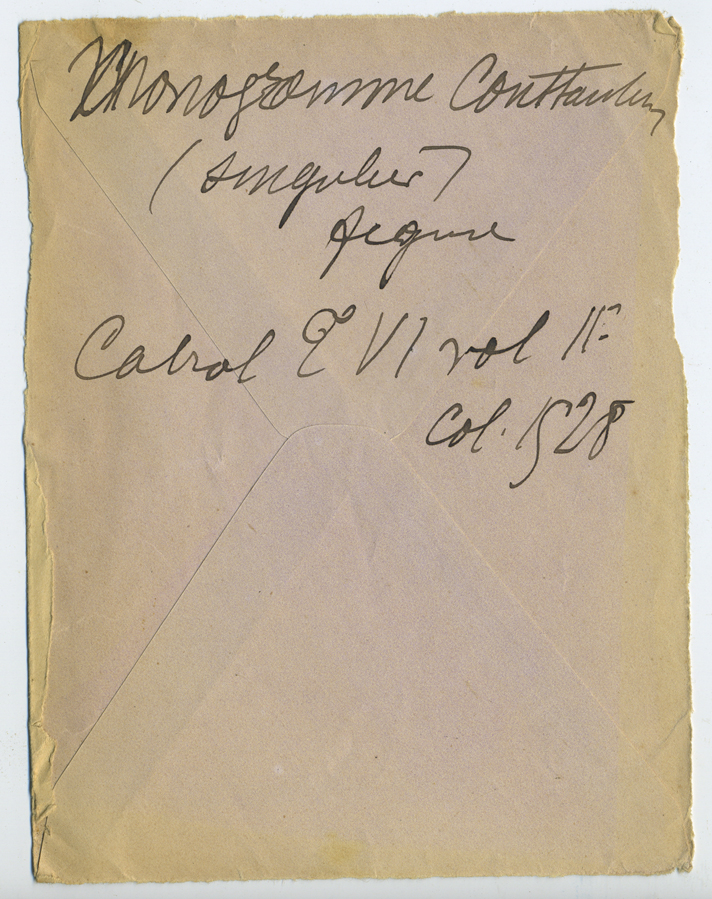 Monogramme Constantin
(singulier)
figure
Cabrol T VI vol II
col. 1528